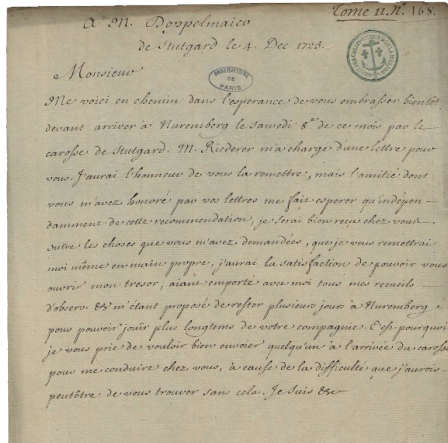 Tome 11. N.º 168.
A M. Doppelmaier
de Stutgard le 4. Dec 1725.
OBSERVATOIRE DE PARIS
Monsieur
Me voici en chemin dans l'esperance de vous embrasser bientôt,
devant arriver à Nuremberg le samedi 8e de ce mois par le
carosse de Stutgard. M. Riederer m'a chargé d'une lettre pour
vous. J'aurai l'honneur de vous la remettre, mais l'amitié dont
vous m'avez honoré par vos lettres me fait esperer qu'indepen-
damment de cette recommendation, je serai bien reçu chez vous.
outre les choses que vous m'avez demandées, que je vous remettrai
moi même en main propre, j'aurai la satisfaction de pouvoir vous
ouvrir mon tresor, aiant emporté avec moi tous mes recueils
d'observ. &c m'étant proposé de rester plusieurs jours à Nuremberg
pour pouvoir joüir plus longtems de votre compagnie. C'est pourquoi
je vous prie de vouloir bien envoier quelqu'un à l'arrivée du carosse
pour me conduire chez vous, à cause de la difficulté que j'aurois
peutêtre de vous trouver sans cela. Je suis &c